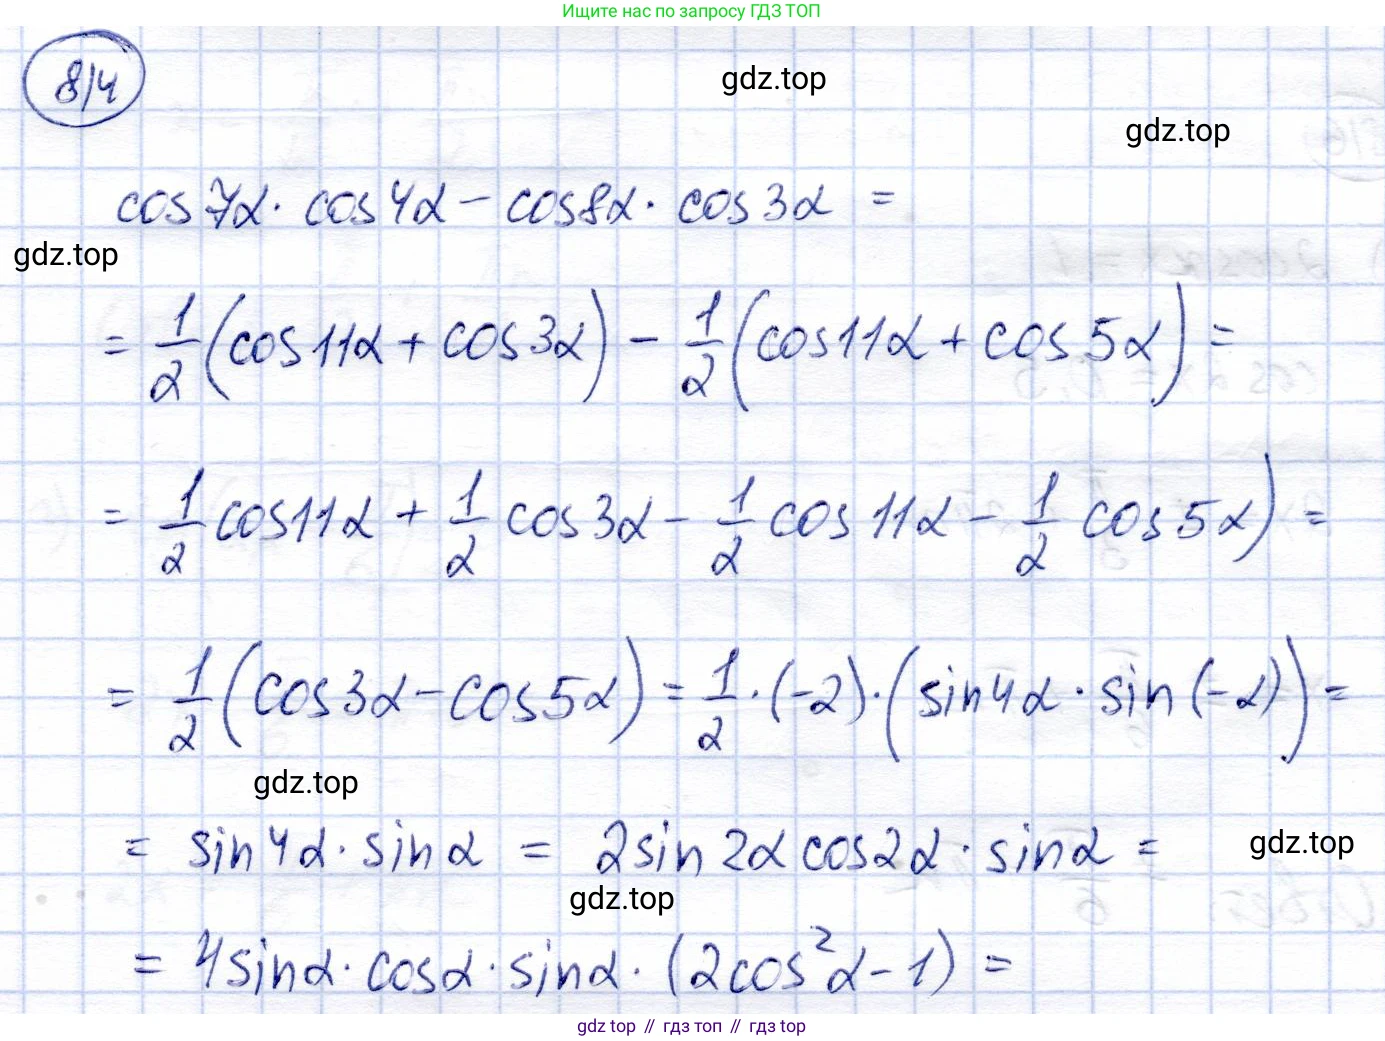 Ищите нас по запросу ГДЗ ТОП
8/4
gdz.top
gdz.top
cos7α · cos4α - cos8α · cos3α =
gdz.top
= 1/2 (cos11α + cos3α) - 1/2 (cos11α + cos5α) =
= 1/2 cos11α + 1/2 cos3α - 1/2 cos11α - 1/2 cos5α) =
= 1/2 (cos3α - cos5α) = 1/2 · (-2) · (sin4α · sin(-α)) =
gdz.top
= sin4α · sinα = 2sin2α cos2α · sinα =
gdz.top
gdz.top
= 4sinα · cosα · sinα · (2cos²α - 1) =
gdz top // гдз топ // гдз top